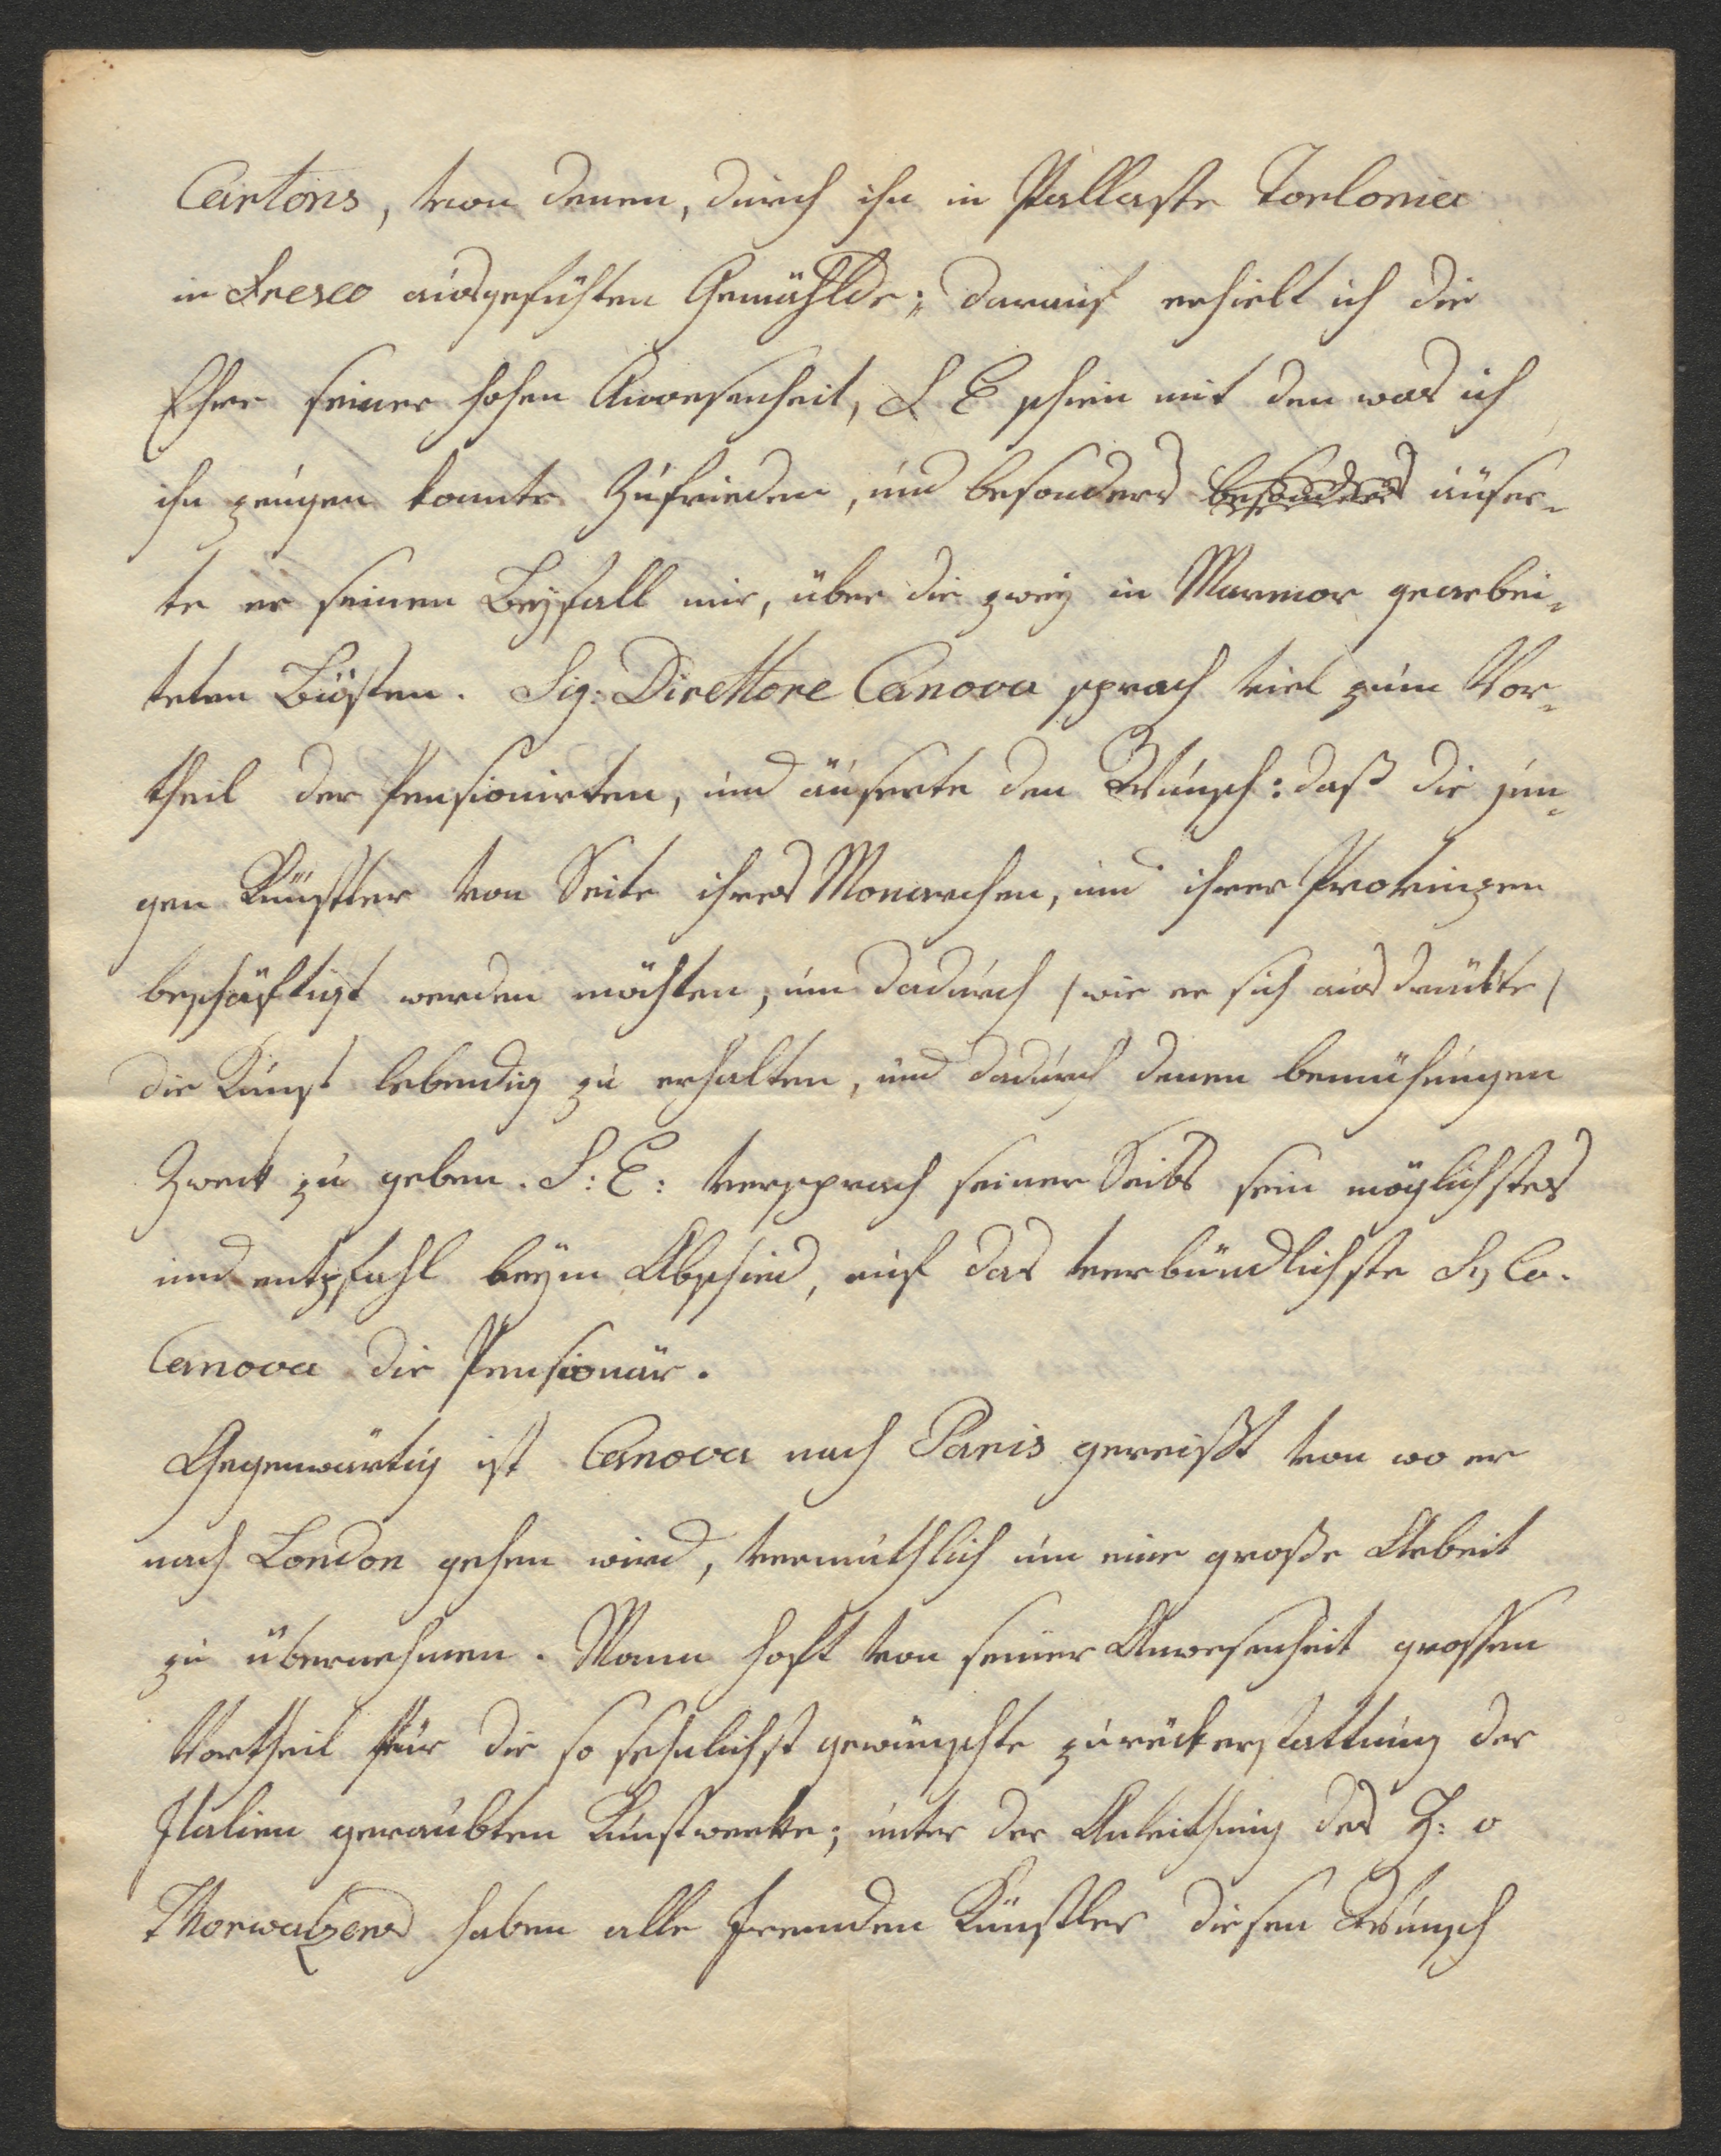 Cartons, von denen, durch ihn in Pallaste Torlonia
in Fresco ausgeführten Gemählde; darauf erhielt ich die
Ehre seiner hohen Anwesenheit, S. E schien mit den was ich
ihn zeugen konnte zufrieden, und besonders besonders äuser-
te er seinen Beyfall mir, über die zwey in Marmor gearbei-
teten Büsten. Sig: Direttore Canova sprach viel zum Vor-
theil der Pensionirten, und äuserte den Wunsch: daß die jun-
gen Künstler von Seite ihres Monarchen, und ihrer Provinzen
beschäftigt werden möchten, um dadurch /wie er sich ausdrückte/
die Kunst lebendig zu erhalten, und dadurch denen bemühungen
Zweck zu geben. S: E: versprach seiner Seits sein möglichstes
und entpfahl beym Abschied, auf das verbündlichste
Canova die Pensionär.
Gegenwärtig ist Canova nach Paris gereißt von wo er
nach London gehen wird, vermuthlich um eine große Arbeit
zu übernehmen. Mann hoft von seiner Anwesenheit grossen
Vortheil für die so sehnlichst gewünschte zurückerstattung der
Italien geraubten Kunstwerke; unter der Anleithung des H: v
Thorwalzens haben alle fremden Künstler diesen Wunsch